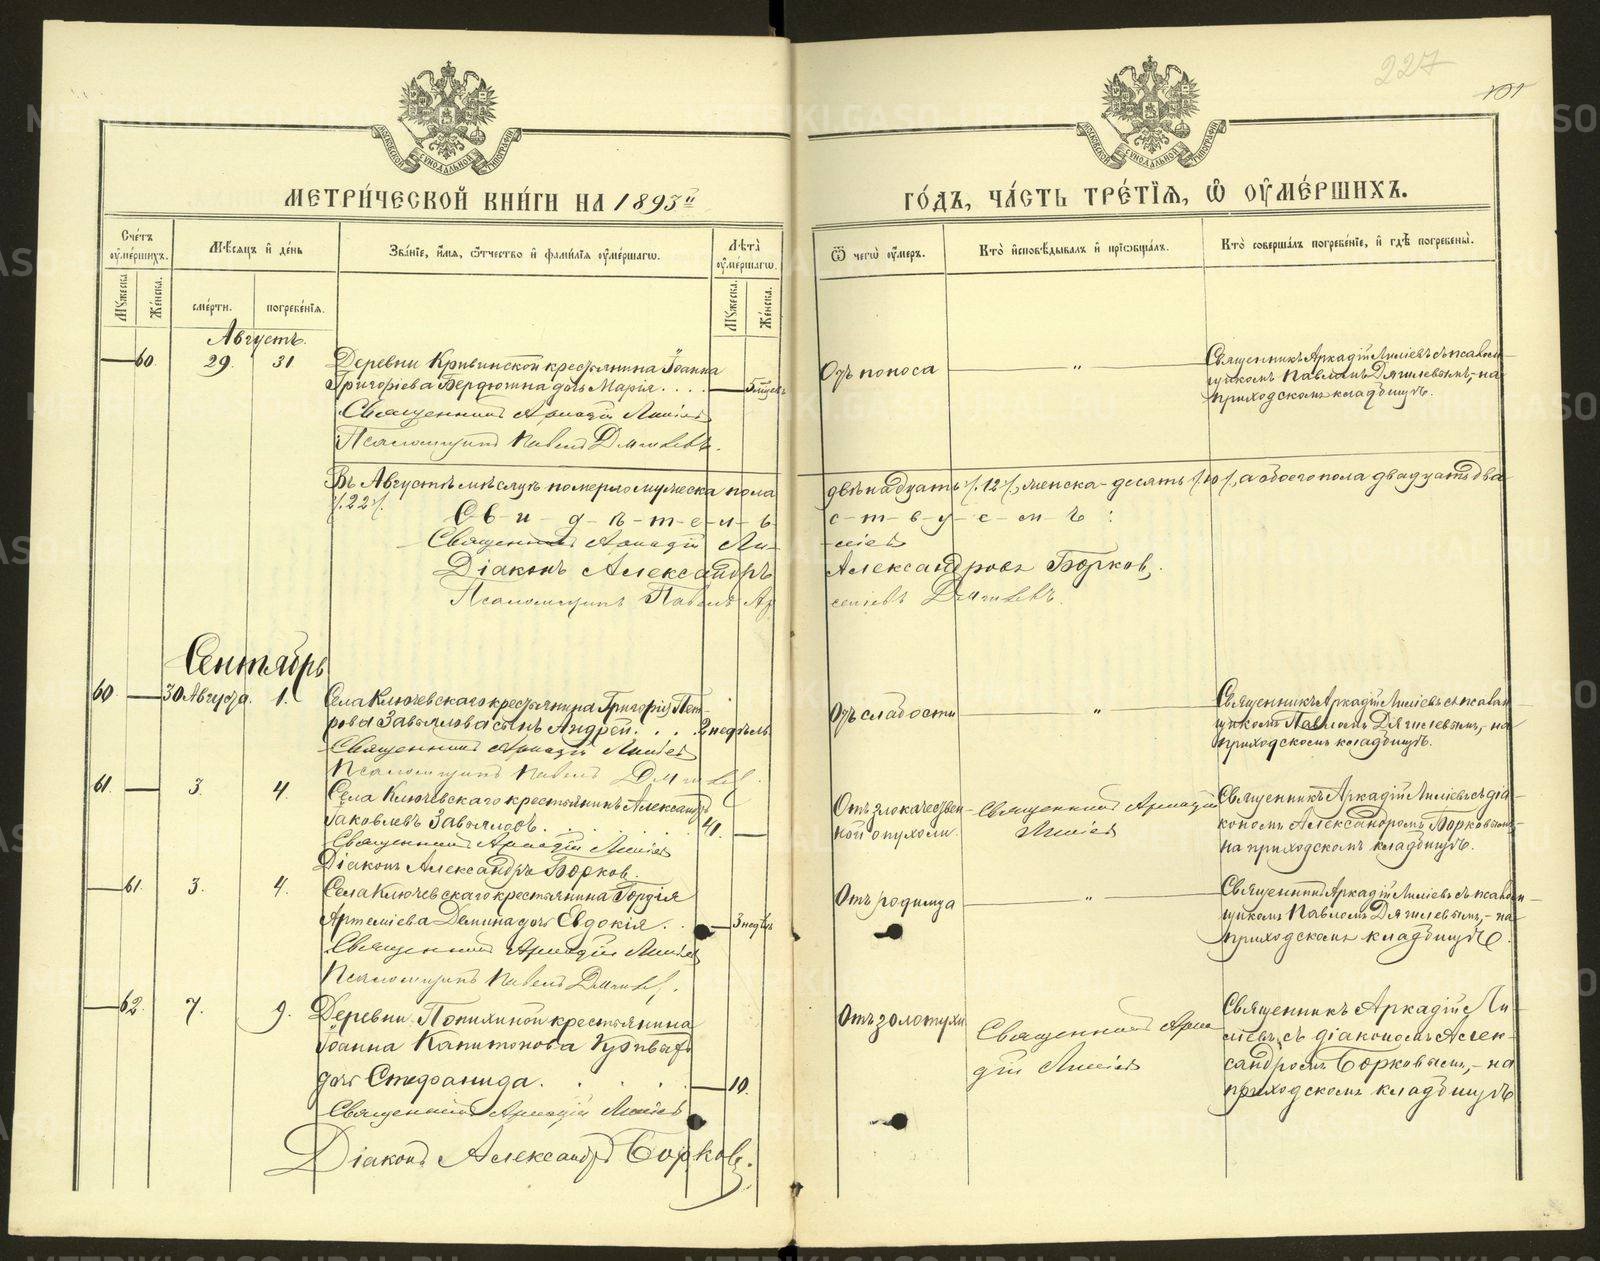 227
101
МОСКОВСКОЙ СѴНОДАЛЬНОЙ ТИПОГРАФІИ
МОСКОВСКОЙ СѴНОДАЛЬНОЙ ТИПОГРАФІИ
МЕТРИ́ЧЕСКОЙ КНИ́ГИ НА 1893й
ГО́ДЪ, ЧА́СТЬ ТРЕ́ТІЯ, Ѡ ОУ҆МЕ́РШИХЪ.
Сче́тъ оу҆ме́ршихъ.
Мѣ́сяцъ и҆ де́нь
Зва́ніе, и҆́мя, ѻ҆́тчество и҆ фами́лія оу҆ме́ршагѡ.
Лѣ́та оу҆ме́ршагѡ.
Ѿ чегѡ̀ оу҆́меръ.
Кто̀ и҆сповѣ́дывалъ и҆ прїѡбща́лъ.
Кто̀ соверша́лъ погребе́ніе, и҆ гдѣ̀ погребены̀.
Му́жеска.
Же́нска.
сме́рти.
погребе́нія.
Му́жеска.
Же́нска.
Августъ.
60. 29. 31 Деревни Кривинской крестьянина Іоанна
Григоріева Бердюгина дочь Марія. . . . 5 мѣсяц.
Священникъ Аркадій Лиліевъ
Псаломщикъ Павелъ Дягилевъ.
Отъ поноса „
Священникъ Аркадій Лиліевъ съ псаломщикомъ
Павломъ Дягилевымъ,-на
приходскомъ кладбищѣ.
Въ Августѣ мѣсяцѣ померло мужеска пола двѣнадцать /.12/., женска - десять /.10/., а обоего пола двадцать два
/.22/.
С-в-и-д-ѣ-т-е-л-ь-с-т-в-у-е-м-ъ:
Священникъ Аркадій Лиліевъ
Діаконъ Александръ Александровъ Борковъ,
Псаломщикъ Павелъ Арсеніевъ Дягилевъ.
Сентябрь
60. 30 Августа. 1. Села Ключевскаго крестьянина Григорія Петрова
Завьялова сынъ Андрей. . . 2 недѣль
Священникъ Аркадій Лиліевъ
Псаломщикъ Павелъ Дягилев.
Отъ слабости „
Священникъ Аркадій Лиліевъ съ псаломщикомъ
Павломъ Дягилевымъ,-на
приходскомъ кладбищѣ.
61. 3. 4. Села Ключевскаго крестьянинъ Александръ
Іаковлевъ Завьяловъ. 41.
Священникъ Аркадій Лиліевъ
Діаконъ Александръ Борков.
Отъ злокачественной
опухоли.
Священникъ Аркадій
Лиліевъ
Священникъ Аркадій Лиліевъ съ діакономъ
Александромъ Борковымъ,-
на приходскомъ кладбищѣ.
61. 3. 4. Села Ключевскаго крестьянина Гордія
Артеміева Демина дочь Евдокія. . 3 недѣль
Священникъ Аркадій Лиліевъ
Псаломщикъ Павелъ Дягилев.
Отъ родимца „
Священникъ Аркадій Лиліевъ съ псаломщикомъ
Павломъ Дягилевымъ,-на
приходскомъ кладбищѣ.
62. 7. 9. Деревни
крестьянина
Іоанна Капитонова
дочь Стефанида. 10.
Священникъ Аркадій Лиліевъ
Діаконъ Александръ Борковъ.
Отъ золотухи
Священникъ Аркадій
Лиліевъ
Священникъ Аркадій Лиліевъ,
съ діакономъ Александромъ
Борковымъ,-на
приходскомъ кладбищѣ
METRIKI.GASO-URAL.RU